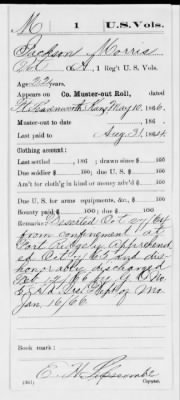 M | 1 | U.S. Vols.
Jackson Morris
Pvt., Co. A, 1 Reg't U. S. Vols.
Age 22 years.
Appears on Co. Muster-out Roll, dated
Ft. Leavenworth, Kans, May 10, 1866.
Muster-out to date , 186 .
Last paid to Aug 31, 1864.
Clothing account:
Last settled , 186 ; drawn since $ 100
Due soldier $ 100; due U. S. $ 100
Am't for cloth'g in kind or money adv'd $ 100
Due U. S. for arms, equipments, &c., $ 100
Bounty paid $ 100; due $ 100
Remarks: Deserted Oct. 64
from confinement at
Fort Ridgely. Apprehend
ed Oct 65 and dis-
honorably discharged
66 by
Mo
Jan 16/66
Book mark:
E. H.
(361) Copyist.